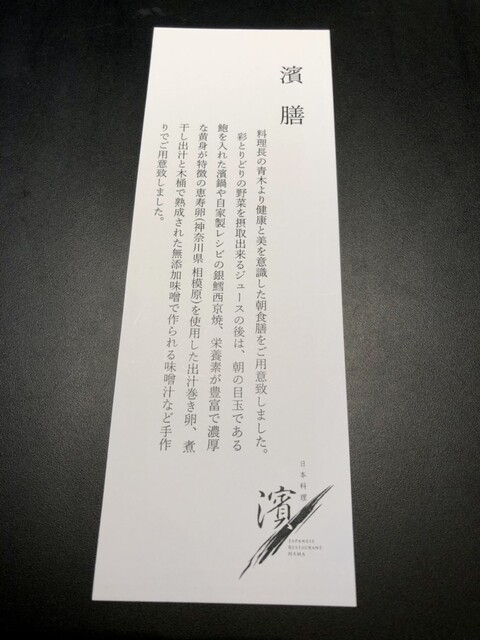 濱膳
料理長の青木より健康と美を意識した朝食膳をご用意致しました。
彩とりどりの野菜を摂取出来るジュースの後は、朝の目玉である
鮑を入れた濱鍋や自家製レシピの銀鱈西京焼、栄養素が豊富で濃厚
な黄身が特徴の恵寿卵(神奈川県 相模原)を使用した出汁巻き卵、煮
干し出汁と木桶で熟成された無添加味噌で作られる味噌汁など手作
りでご用意致しました。
日本料理
濱
JAPANESE
RESTAURANT
HAMA